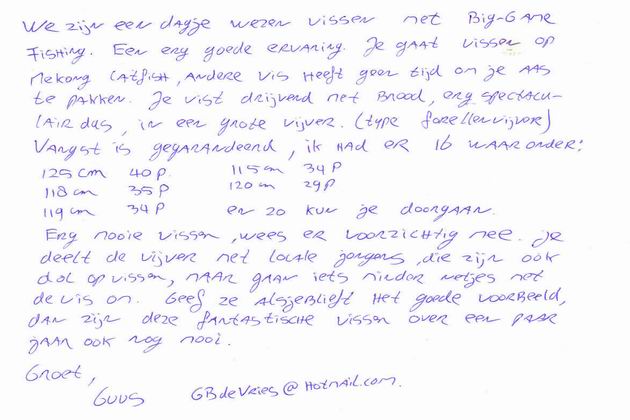 We zijn een dagje wezen vissen met Big-Game
Fishing. Een erg goede ervaring. Je gaat vissen op
Mekong Catfish, andere vis heeft geen tijd om je aas
te pakken. Je vist drijvend met brood, erg spectacu-
lair dus, in een grote vijver. (type forellenvijver)
Vangst is gegarandeerd, ik had er 16 waaronder:
125 cm 40 P. 115 cm 34 P
118 cm 35 P 120 cm 29 P
119 cm 34 P en zo kun je doorgaan.
Erg mooie vissen, wees er voorzichtig mee. Je
deelt de vijver met locale jongens, die zijn ook
dol op vissen, maar gaan iets minder netjes met
de vis om. Geef ze alsjeblieft het goede voorbeeld,
dan zijn deze fantastische vissen over een paar
jaar ook nog mooi.
Groet,
Guus GBdeVries@hotmail.com.